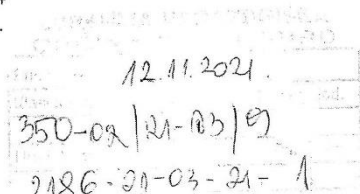 12.11.2021.
350-02/21-03/9
2186-21-03-21-1